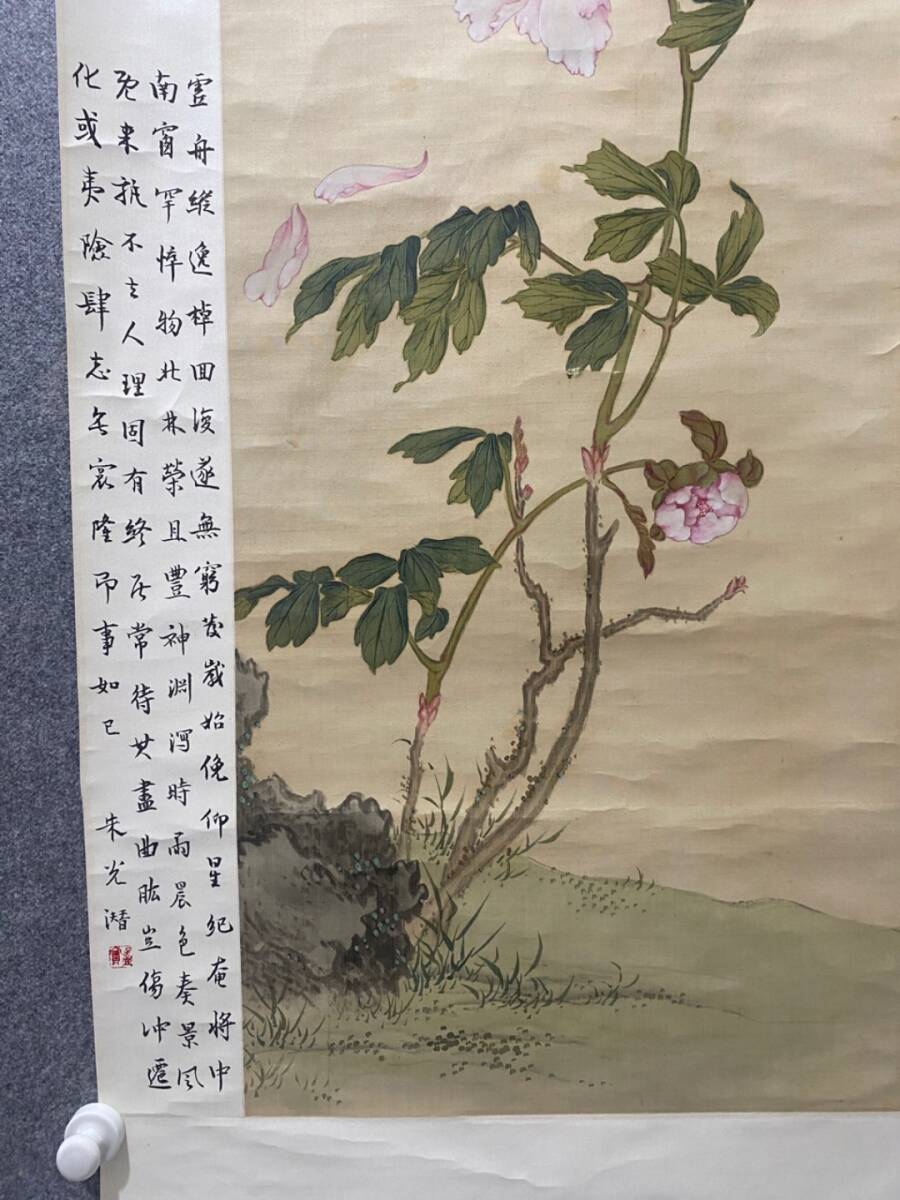 虛舟縱逸棹回復遂無窮發歲始俛仰星紀奄將中
南窗罕悴物北林榮且豐神淵瀉時雨晨色奏景風
既来孰不去人理固有終居常待其盡曲肱豈傷冲遷
化或夷險肆志无窊隆即事如已
朱光潛